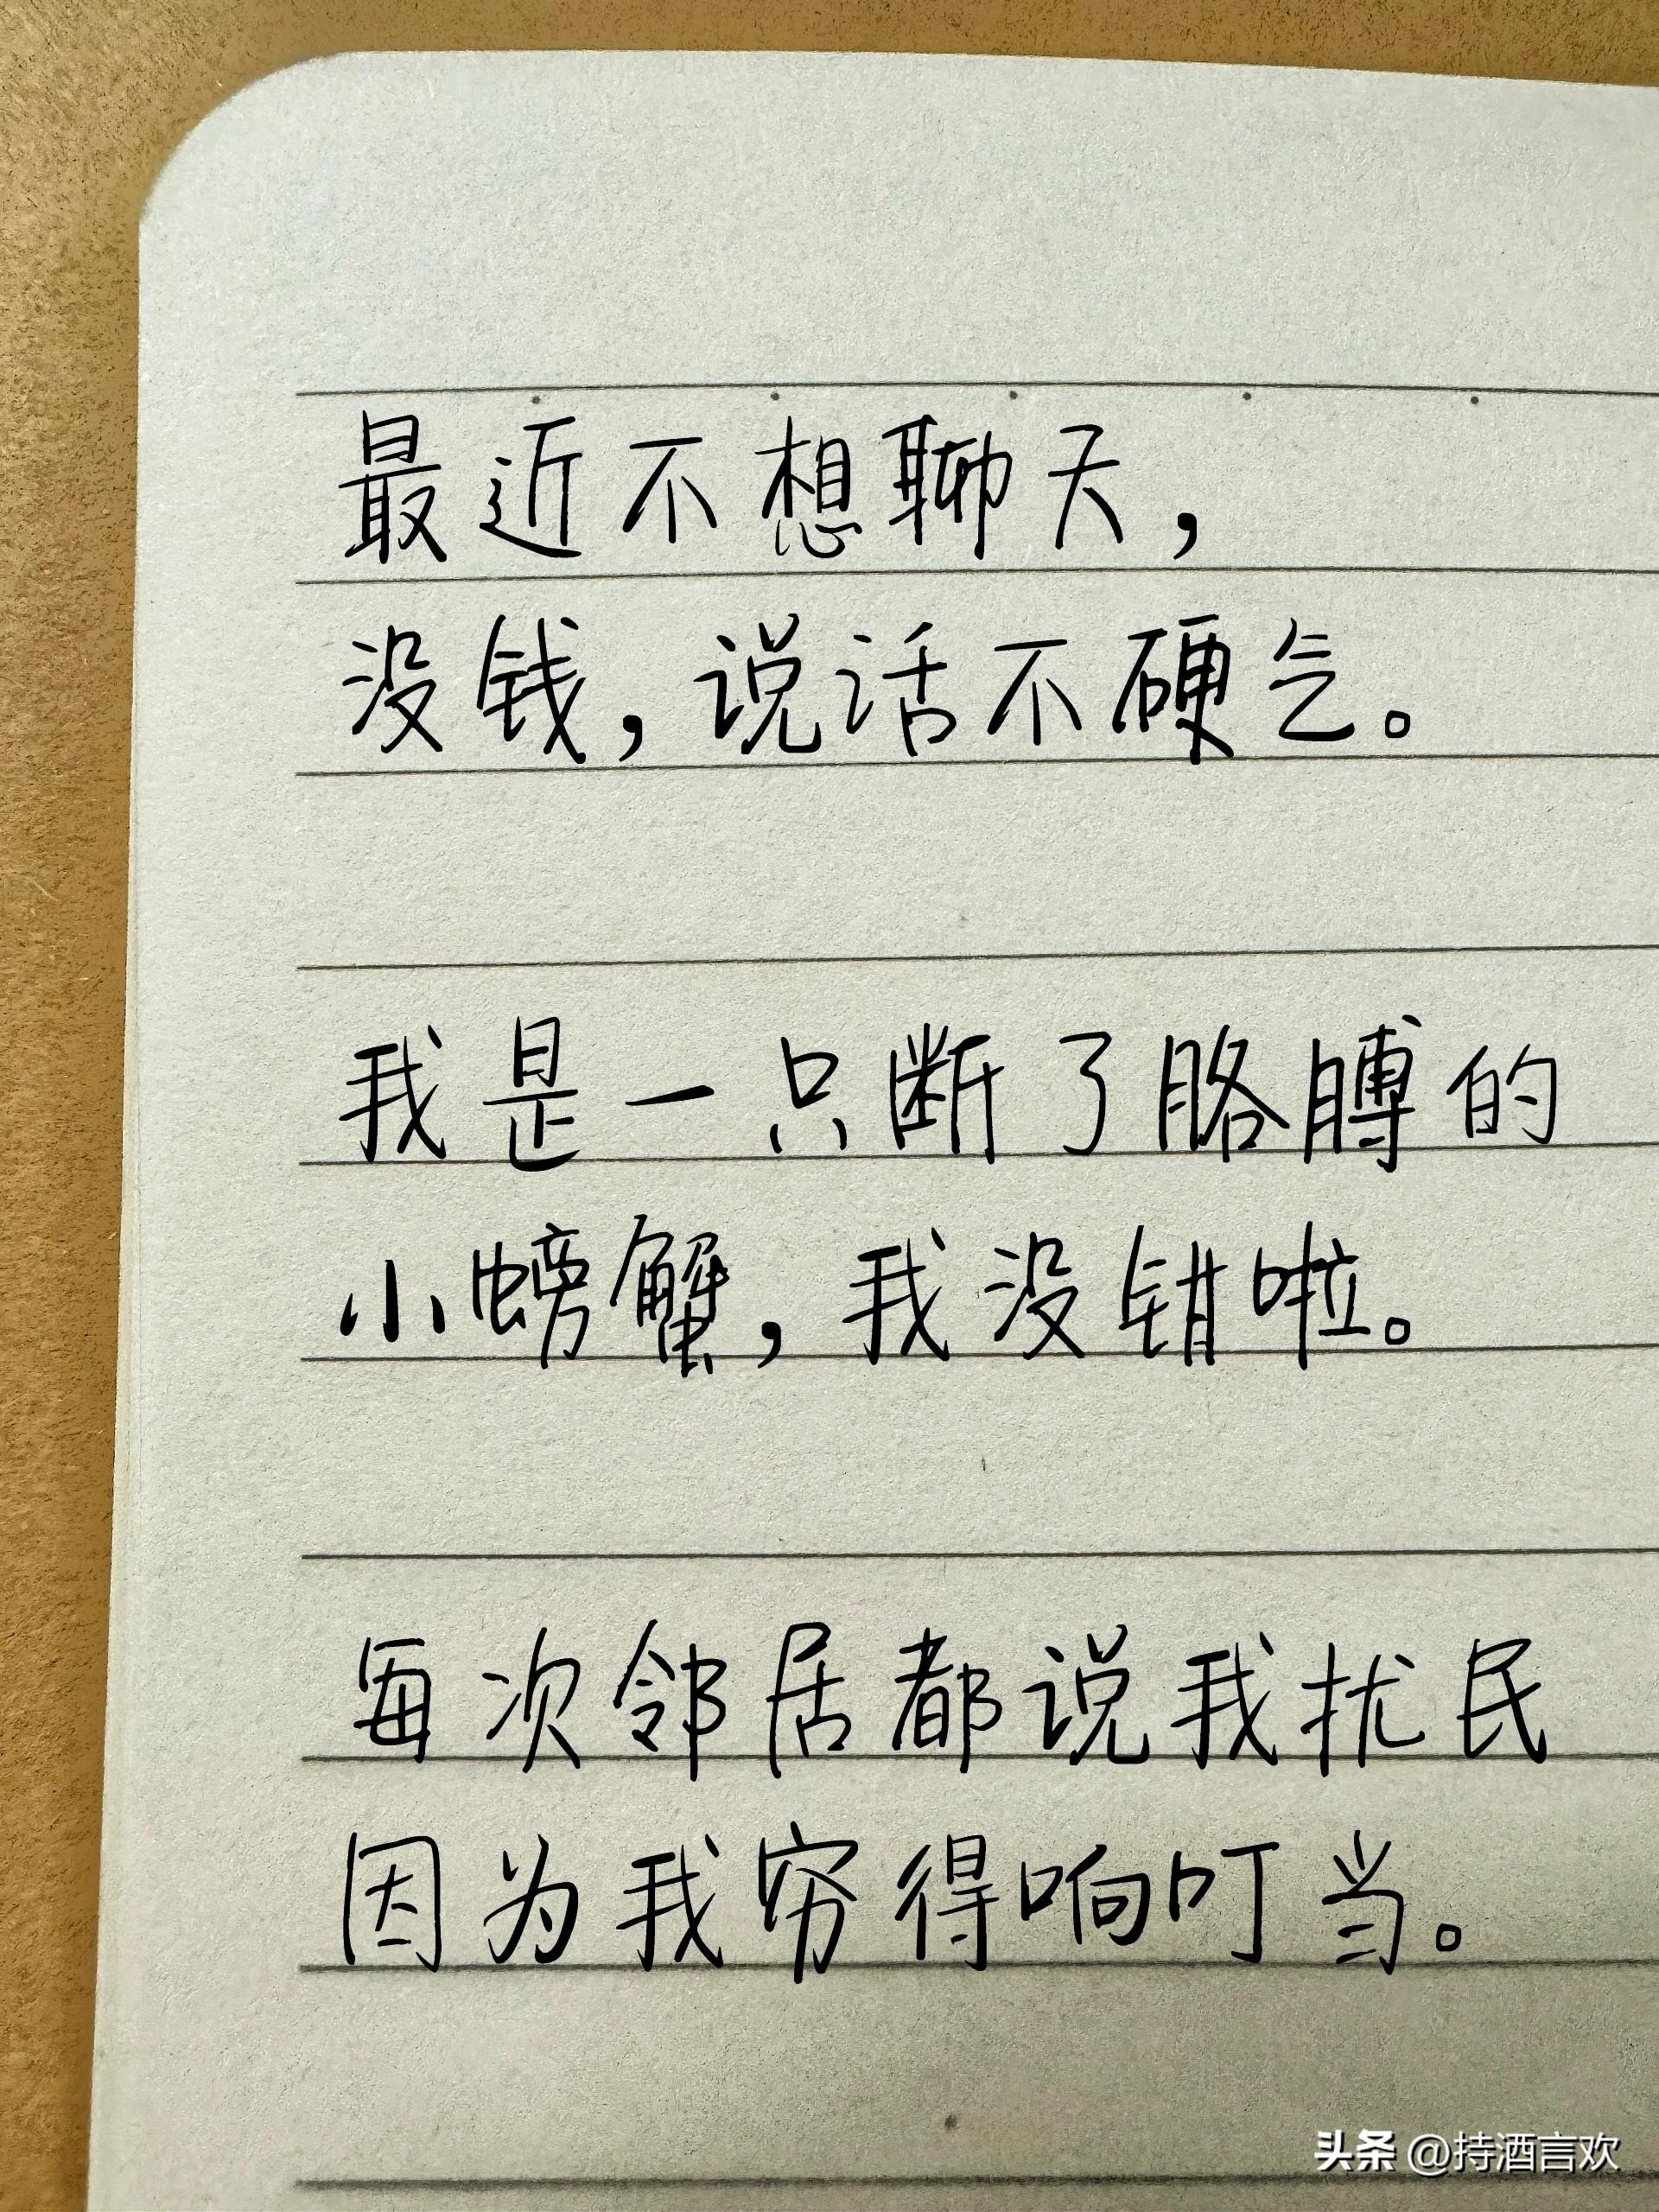 最近不想聊天，
没钱，说话不硬气。
我是一只断了胳膊的
小螃蟹，我没钳啦。
每次邻居都说我扰民
因为我穷得响叮当。
头条 @持酒言欢